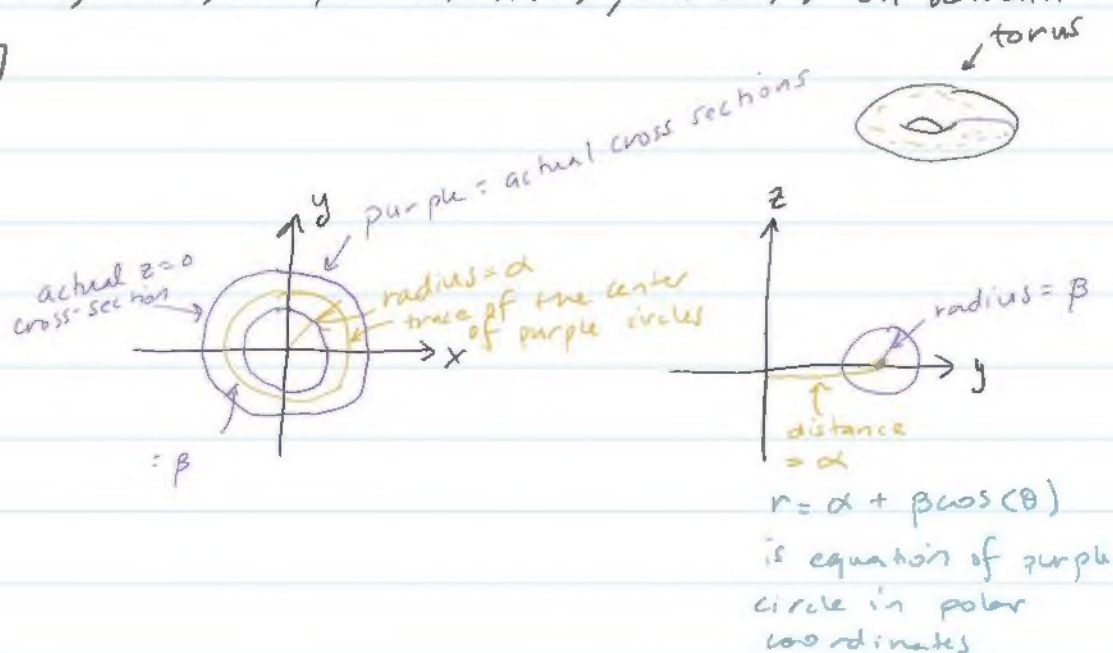 torus
purple = actual cross sections
y
actual z=0
cross-section
radius = α
trace of the center
of purple circles
x
= β
z
radius = β
y
distance
= α
r = α + βcos(θ)
is equation of purple
circle in polar
coordinates